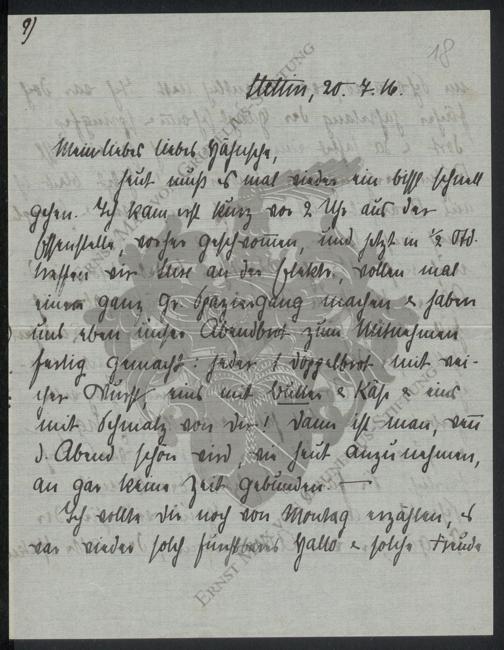 9)
18
Stettin, 20.7.16.
Mein liebes liebes Hänsche,
heut muß es mal wieder ein bißl schnell
gehen. Ich kam erst kurz vor 2 Uhr aus der
, vorher geschwommen, und jetzt in 1/2 Std.
treffen wir uns an der Elektr., wollen mal
einen ganz gr. Spaziergang machen & haben
uns eben unser Abendbrot zum Mitnehmen
fertig gemacht: jeder 1 Doppelbrot mit wei-
cher Wurst eins mit Butter & Käse & eins
mit Schmalz von Dir! Dann ist man, wenn
d. Abend schön wird, wie heut anzunehmen,
an gar keine Zeit gebunden. —
Ich wollte Dir noch von Montag erzählen, es
war wieder solch furchtbares Hallo & solche Freude
ERNST MAYR
STIFTUNG